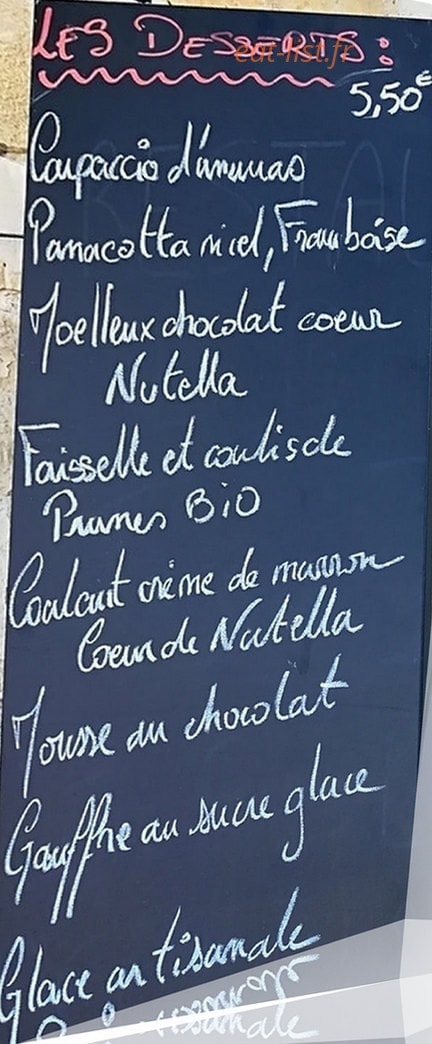 LES DESSERTS :
eat-list.fr
5,50€
Carpaccio d'ananas
Panacotta miel, Framboise
Moelleux chocolat coeur
Nutella
Faisselle et coulis de
Prunes BiO
Coulant crème de marron
Coeur de Nutella
Mousse au chocolat
Gauffre au sucre glace
Glace artisanale